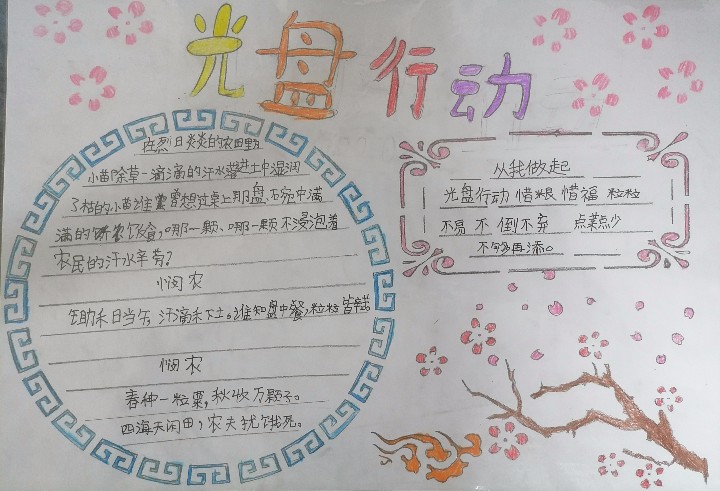 光盘行动
在烈日炎炎的农田里
小苗除草一滴滴的汗水落进土中湿润
了樹的小苗谁曾想过桌上那盘、碗中满
满的饭食,哪一颗、哪一颗不浸泡着
农民的汗水辛劳?
悯农
日当午,汗滴禾下土。谁知盘中餐,粒粒皆
悯农
春种一粒粟,秋收万颗子。
四海无闲田,农夫犹饿死。
从我做起
光盘行动 惜粮 惜福 粒粒
不易 不倒不弃 点菜点少
不够再添。